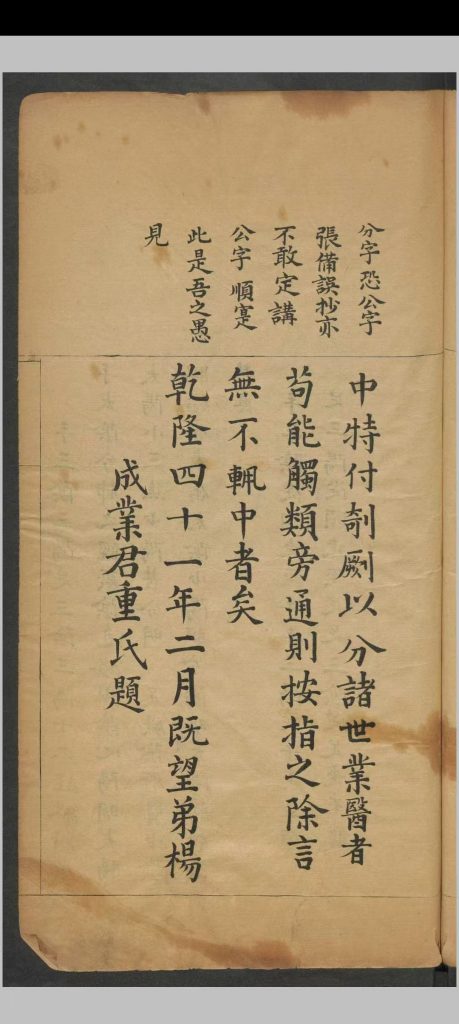 分字恐公字
張備誤抄亦
不敢定講
公字順寔
此是吾之愚
見
中特付剞劂以分諸世業醫者
茍能觸類旁通則按指之除言
無不輒中者矣
乾隆四十一年二月既望弟楊
成業君重氏題